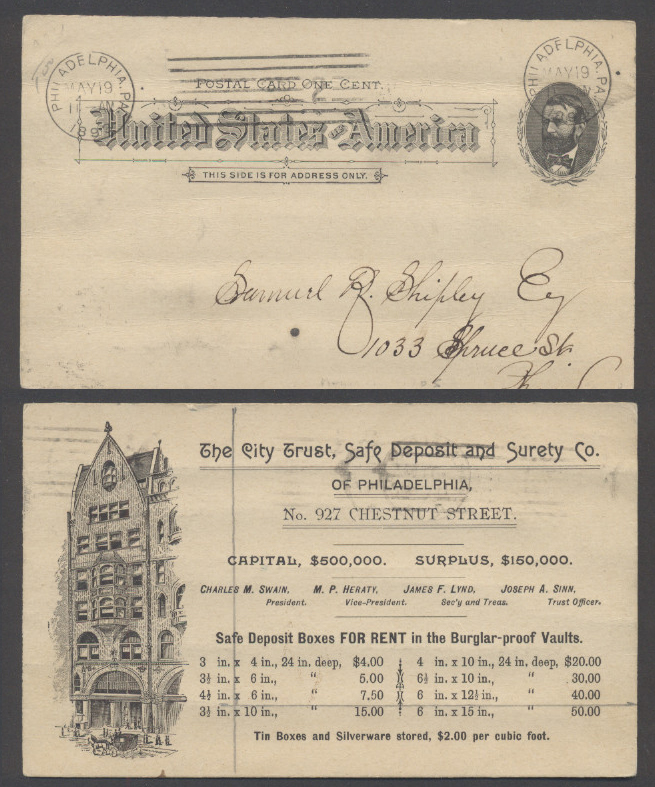 PHILADELPHIA, PA.
MAY 19
PHILADELPHIA, PA.
MAY 19
POSTAL CARD ONE CENT.
United States of America
THIS SIDE IS FOR ADDRESS ONLY.
Samuel R. Shipley Esq
1033 Spruce St.
The City Trust, Safe Deposit and Surety Co.
OF PHILADELPHIA,
No. 927 CHESTNUT STREET.
CAPITAL, $500,000. SURPLUS, $150,000.
CHARLES M. SWAIN, M. P. HERATY, JAMES F. LYND, JOSEPH A. SINN,
President. Vice-President. Sec'y and Treas. Trust Officer.
Safe Deposit Boxes FOR RENT in the Burglar-proof Vaults.
3 in. x 4 in., 24 in. deep, $4.00 4 in. x 10 in., 24 in. deep, $20.00
3½ in. x 6 in., " 5.00 6½ in. x 10 in., " 30.00
4½ in. x 6 in., " 7.50 6 in. x 12½ in., " 40.00
3½ in. x 10 in., " 15.00 6 in. x 15 in., " 50.00
Tin Boxes and Silverware stored, $2.00 per cubic foot.